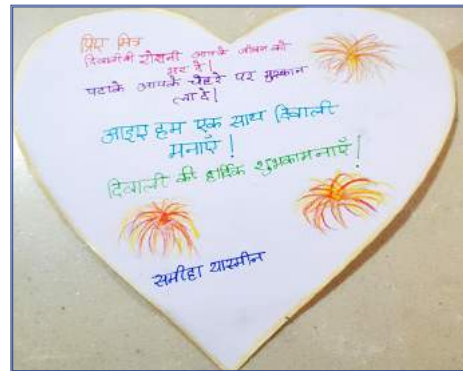 प्रिए मित्र
दिवालीकी रोशनी आपके जीवन को
भर दे|
पटाके आपके चेहरे पर मुस्कान
ला दे|
आइए हम एक साथ दिवाली
मनाएँ!
दिवाली की हार्दिक शुभकामनाएँ!
समीहा यास्मीन